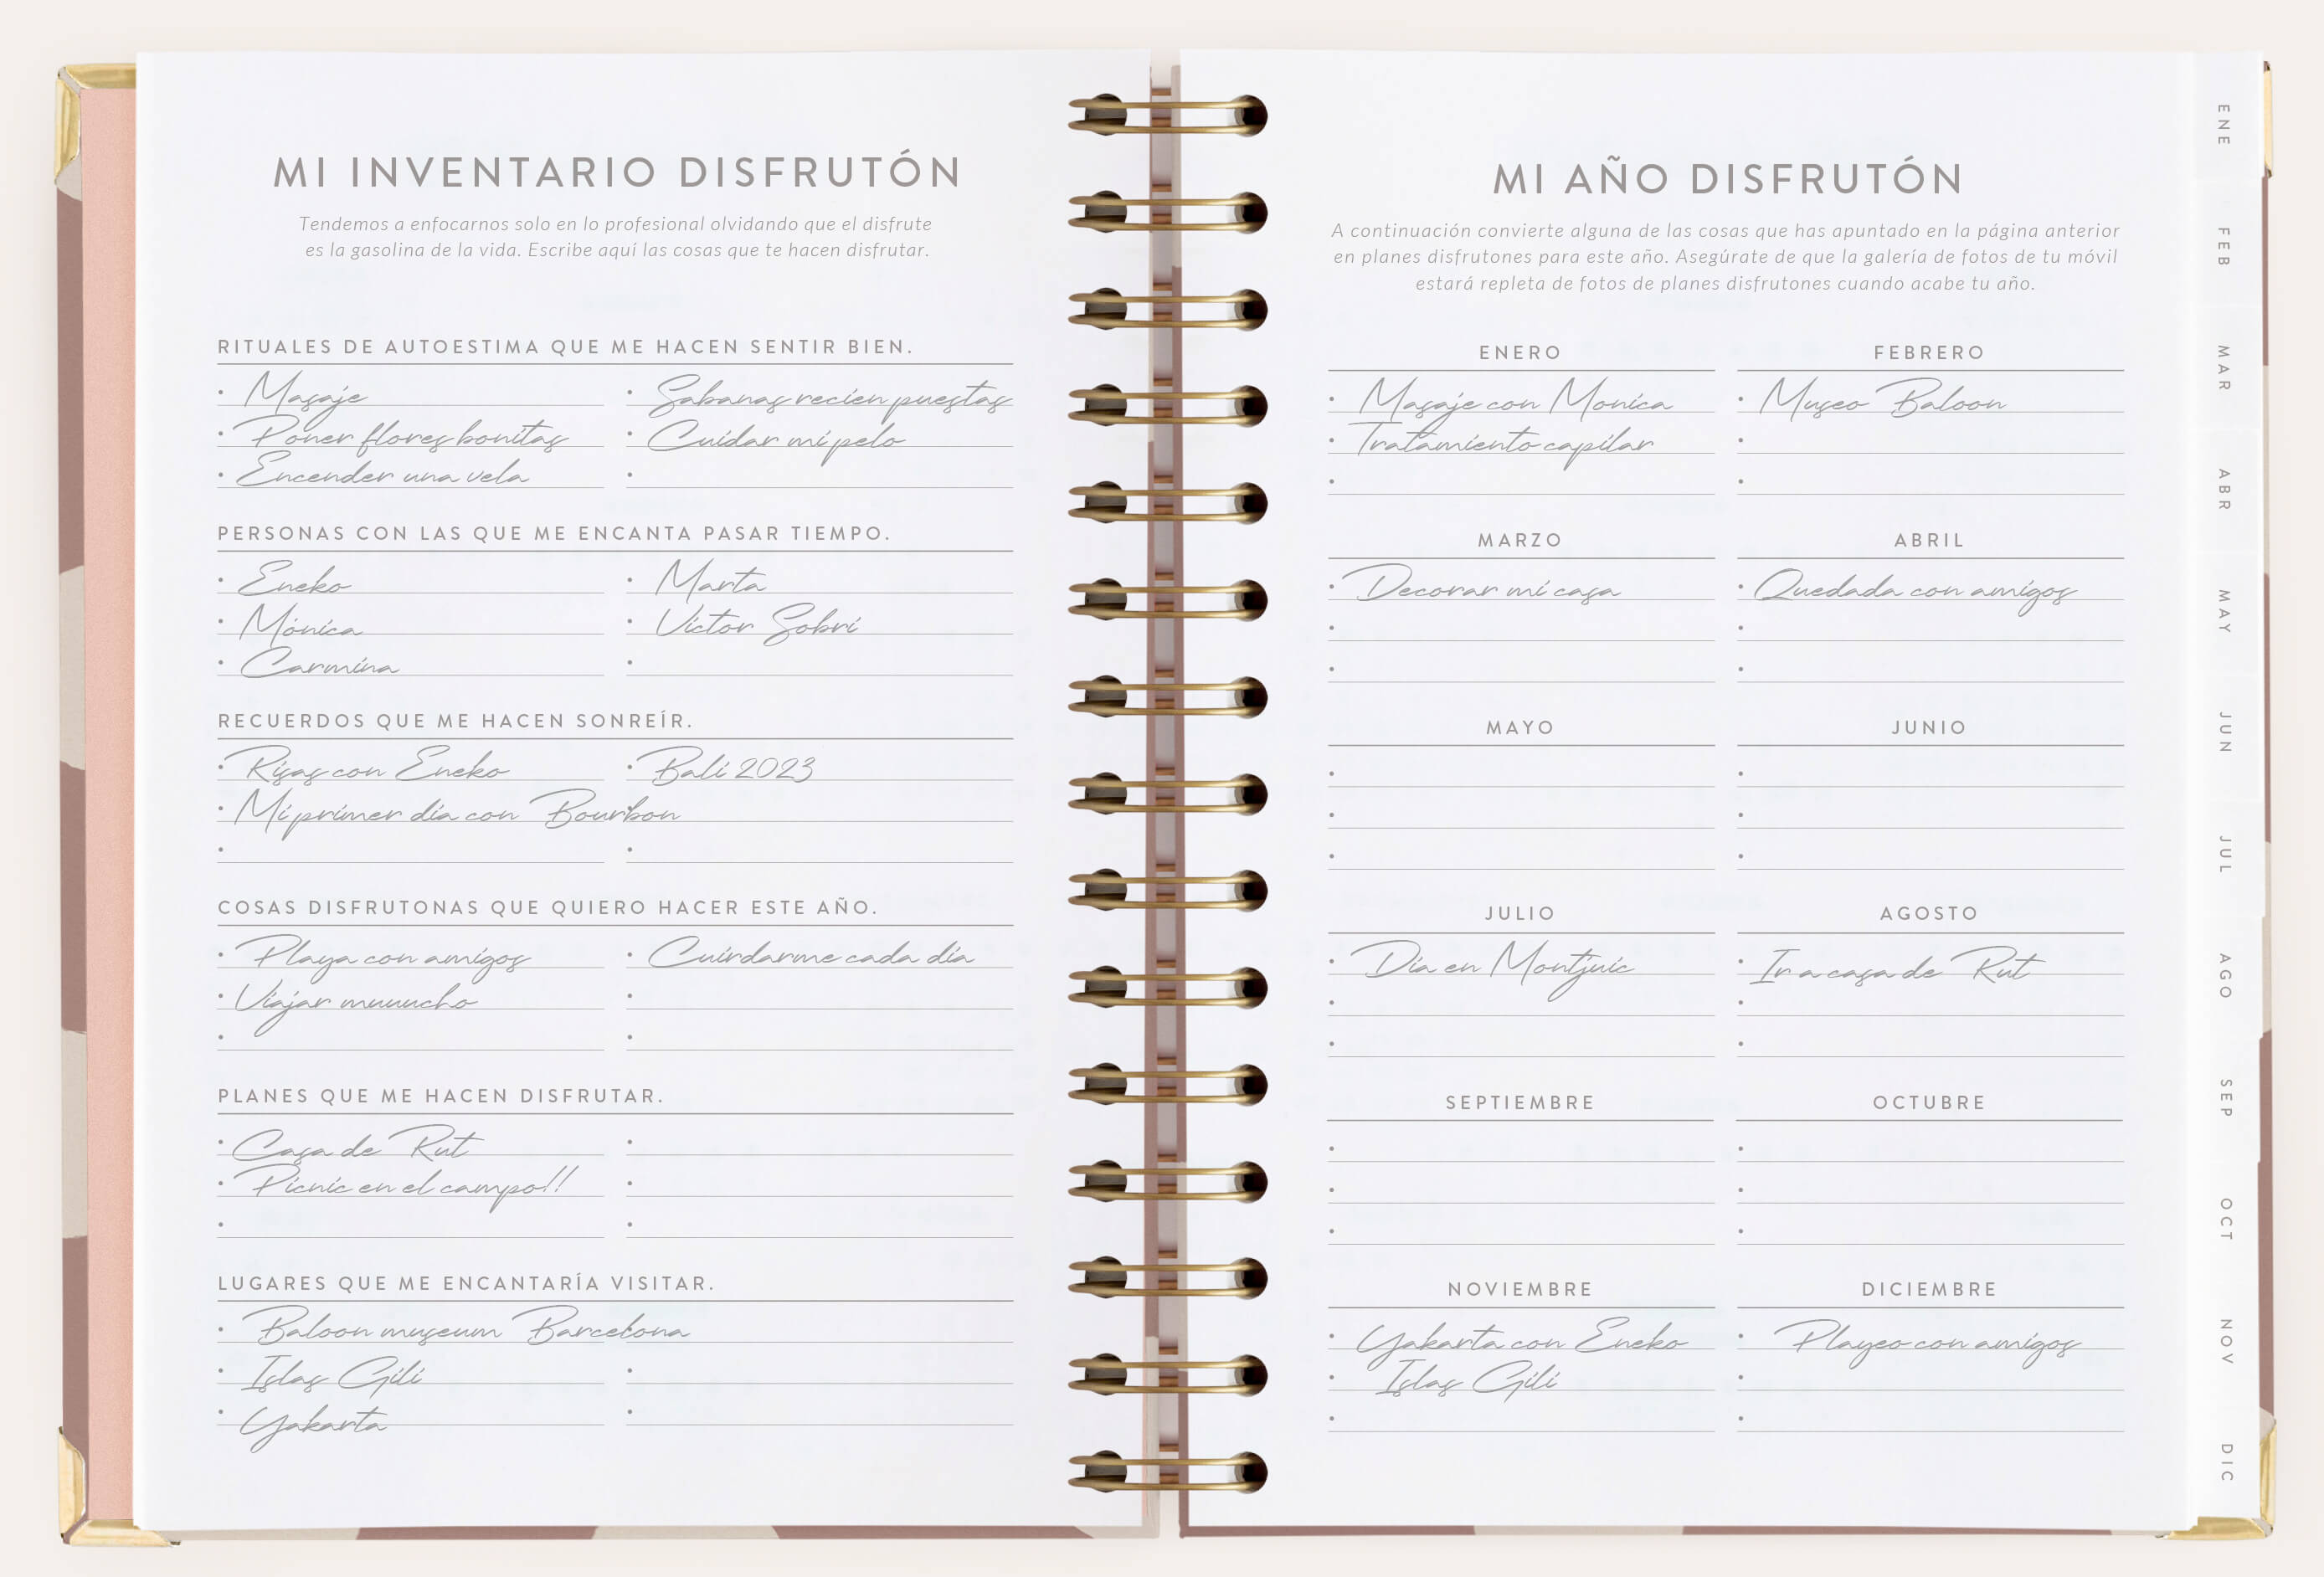 MI INVENTARIO DISFRUTÓN
Tendemos a enfocarnos solo en lo profesional olvidando que el disfrute
es la gasolina de la vida. Escribe aquí las cosas que te hacen disfrutar.
RITUALES DE AUTOESTIMA QUE ME HACEN SENTIR BIEN.
• Masaje
• Poner flores bonitas
• Encender una vela
• Sabanas recien puestas
• Cuidar mi pelo
•
PERSONAS CON LAS QUE ME ENCANTA PASAR TIEMPO.
• Eneko
• Mónica
• Carmina
• Marta
• Victor Sobri
•
RECUERDOS QUE ME HACEN SONREÍR.
• Risas con Eneko
• Bali 2023
• Mi primer día con Bourbon
•
•
COSAS DISFRUTONAS QUE QUIERO HACER ESTE AÑO.
• Playa con amigos
• Viajar muuucho
•
• Cuirdarme cada día
•
•
PLANES QUE ME HACEN DISFRUTAR.
• Casa de Rut
• Picnic en el campo!!
•
•
•
•
LUGARES QUE ME ENCANTARÍA VISITAR.
• Baloon museum Barcelona
• Islas Gili
• Yakarta
•
•
MI AÑO DISFRUTÓN
A continuación convierte alguna de las cosas que has apuntado en la página anterior
en planes disfrutones para este año. Asegúrate de que la galería de fotos de tu móvil
estará repleta de fotos de planes disfrutones cuando acabe tu año.
ENERO
• Masaje con Monica
• Tratamiento capilar
•
FEBRERO
• Museo Baloon
•
•
MARZO
• Decorar mi casa
•
•
ABRIL
• Quedada con amigos
•
•
MAYO
•
•
•
JUNIO
•
•
•
JULIO
• Día en Montjuic
•
•
AGOSTO
• Ir a casa de Rut
•
•
SEPTIEMBRE
•
•
•
OCTUBRE
•
•
•
NOVIEMBRE
• Yakarta con Eneko
• Islas Gili
•
DICIEMBRE
• Playeo con amigos
•
•
ENE
FEB
MAR
ABR
MAY
JUN
JUL
AGO
SEP
OCT
NOV
DIC